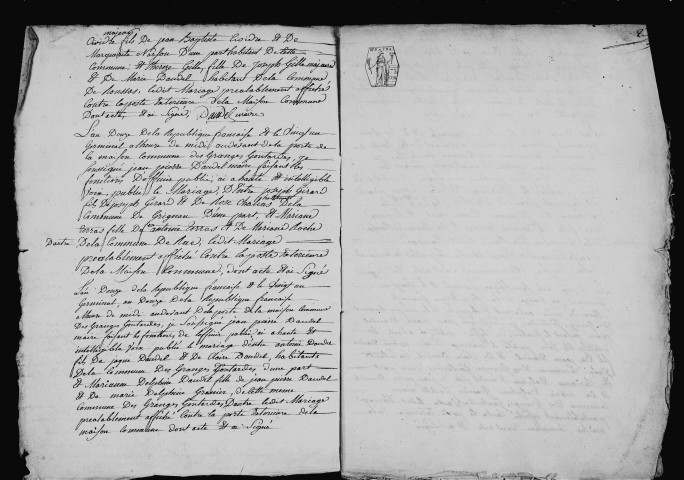 majeurs
fils De jean Baptiste et De
Marguerite D'une part habitant De cette
Commune et Therese Gelle, fille De Joseph Gelle majeure
et De Marie Daudel habitant Dela Commune
De Roussas, ledit Mariage prealablement affiché
Contre la porte Exterieure Dela Maison Commune
Dont acte et ai Signé, Daudel maire
L'an Douze Dela Republique francaise et le Vingt un
Germinal, a l'heure de midi audevant dela porte de
la maison commune des Granges Gontardes, je
Soussigné jean pierre Daudel maire faisant les
fonctions D'officier public, ai a haute et intelligible
voix publié le Mariage, D'entre joseph Girard
fils De joseph Girard et De Rose Chalias Dela
Commune De Grignan D'une part, et Mariane
Terras fille de antoine Terras et De Mariane Roche
D'autre Dela Commune De Rac, ledit Mariage
prealablement affiché Contre la porte Exterieure
Dela Maison Commune, dont acte et ai Signé
L'an Douze dela republique francaise et le Vingt un
Germinal, an Douze Dela Republique francaise
a l'heure de midi audevant Dela porte de la maison commune
Des Granges Gontardes, je Soussigné jean pierre Daudel
maire faisant les fonctions de l'officier public, ai a haute et
intelligible voix publié le mariage d'entre antoine Daudel
fils De jaque Daudel et De Claire Daudel, habitants
Dela Commune Des Granges Gontardes, d'une part
et Marianne Delphine Daudel fille de jean pierre Daudel
et De marie Delphine Granier, de cette meme
Commune Des Granges Gontardes D'autre ledit Mariage
prealablement affiché Contre la porte Exterieure dela
maison commune dont acte et ai Signé
2